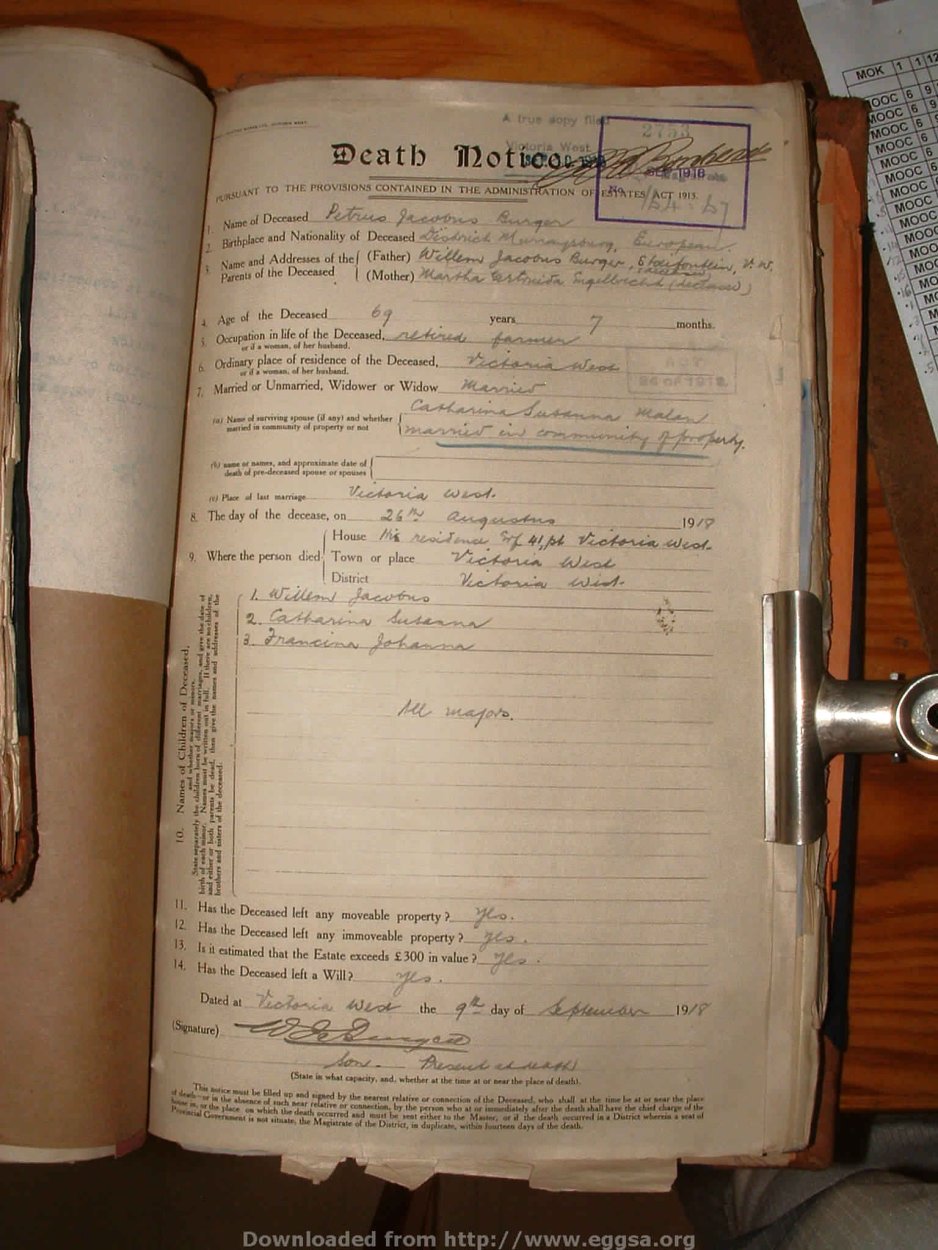 A true copy filed
Victoria West
2753
1918
154:57
Death Notice.
PURSUANT TO THE PROVISIONS CONTAINED IN THE ADMINISTRATION OF ESTATES ACT 1913.
1. Name of Deceased Petrus Jacobus Burger
2. Birthplace and Nationality of Deceased District Murraysburg, European.
3. Name and Addresses of the Parents of the Deceased
(Father) Willem Jacobus Burger, V. W. (deceased)
(Mother) Martha Engelbrecht (deceased)
4. Age of the Deceased 69 years 7 months.
5. Occupation in life of the Deceased, retired farmer
or if a woman, of her husband.
6. Ordinary place of residence of the Deceased, Victoria West
or if a woman, of her husband.
7. Married or Unmarried, Widower or Widow Married
(a) Name of surviving spouse (if any) and whether married in community of property or not
Catharina Susanna Malan
married in community of property.
(b) name or names, and approximate date of death of pre-deceased spouse or spouses
(c) Place of last marriage Victoria West.
8. The day of the decease, on 26th Augustus 1918
9. Where the person died
House His residence Erf 41, Victoria West.
Town or place Victoria West
District Victoria West.
10. Names of Children of Deceased,
and whether majors or minors.
State separately the children born of different marriages, and give the date of
birth of each minor. Names must be written out in full. If there are no children,
and either or both parents be dead, then give the names and addresses of the
brothers and sisters of the deceased.
1. Willem Jacobus
2. Catharina Susanna
3. Francina Johanna
All majors.
11. Has the Deceased left any moveable property? Yes.
12. Has the Deceased left any immoveable property? Yes.
13. Is it estimated that the Estate exceeds £300 in value? Yes.
14. Has the Deceased left a Will? Yes.
Dated at Victoria West the 9th day of September 1918
(Signature) W J Burger
Son. Present at death
(State in what capacity, and, whether at the time at or near the place of death).
This notice must be filled up and signed by the nearest relative or connection of the Deceased, who shall at the time be at or near the place
of death—or in the absence of such near relative or connection, by the person who at or immediately after the death shall have the chief charge of the
house in, or the place, on which the death occurred and must be sent either to the Master, or if the death occurred in a District wherein a seat of
Provincial Government is not situate, the Magistrate of the District, in duplicate, within fourteen days of the death.
MOK 1 1 12
MOOC 6 9
MOOC 6 9
MOOC 6
MOOC 6
MOOC 6
MOOC 6
MOOC
MOOC
MOOC
MOOC
Downloaded from http://www.eggsa.org